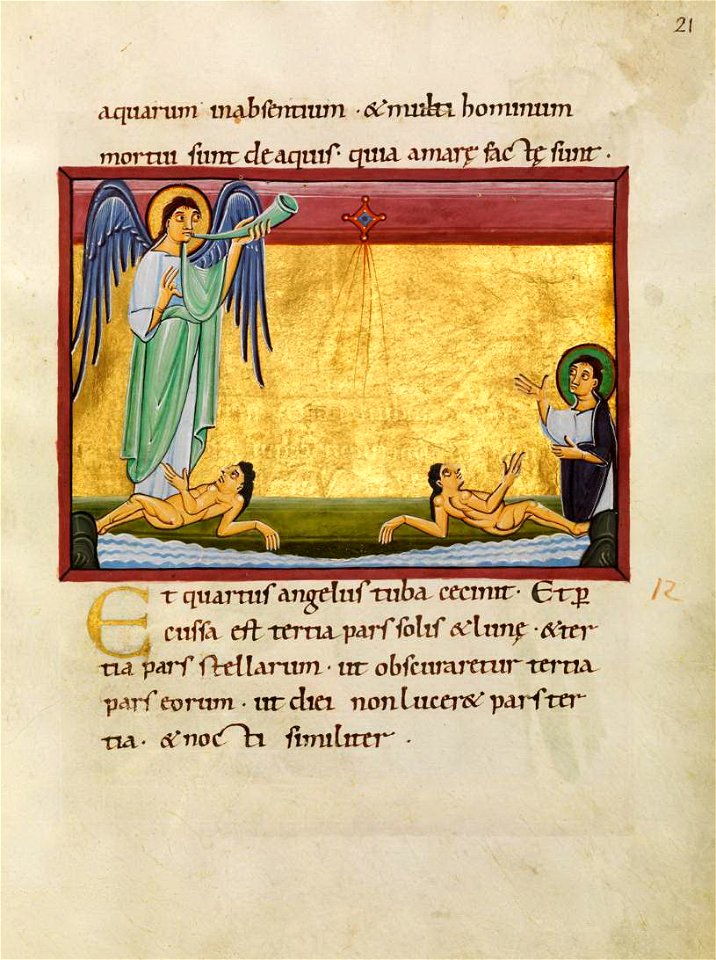 21
aquarum inabsentium · &multi hominum
mortui sunt deaquis · quia amarę factę sunt ·
Et quartus angelus tuba cecinit · Etp̲
cussa est tertia pars solis &lunę · &ter
tia pars stellarum · ut obscuraretur tertia
pars eorum · ut diei nonlucer& pars ter
tia · &nocti similiter ·
12